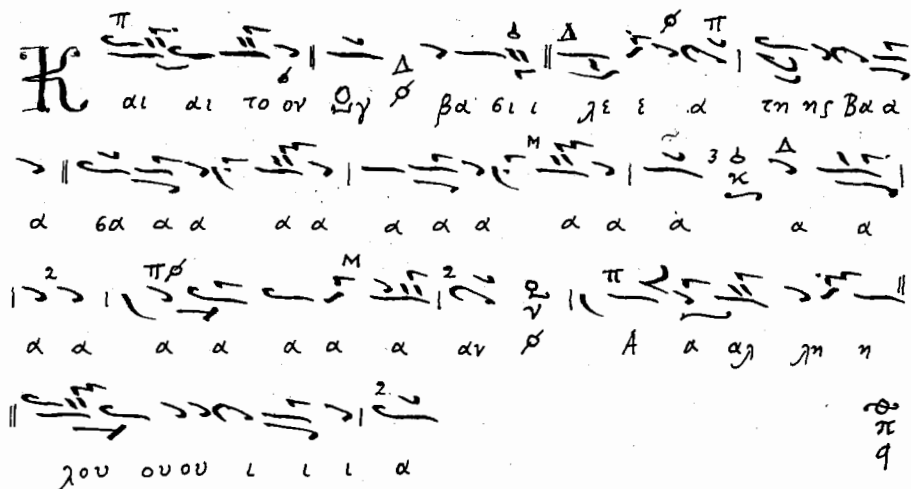 Κ αι αι το ον βα σι ι λε ε α τη ης Βα α
α σα α α α α α α α α α α α α
α α α α α α α αν Α α αλ λη η
λου ου ου ι ι ι α